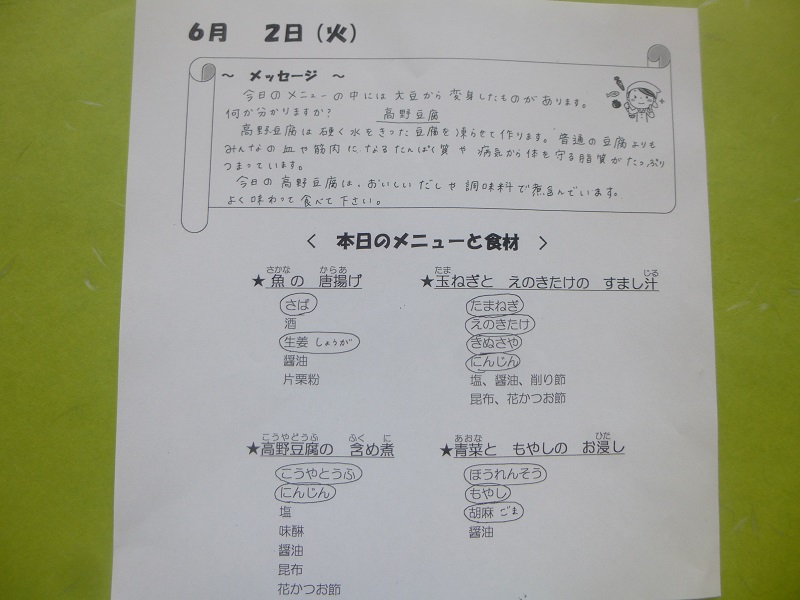 6月 2日(火)
～ メッセージ ～
今日のメニューの中には大豆から変身したものがあります。
何か分かりますか? 高野豆腐
高野豆腐は硬く水をきった豆腐を凍らせて作ります。普通の豆腐よりも
みんなの血や筋肉になるたんぱく質や病気から体を守る脂質がたっぷり
つまっています。
今日の高野豆腐は、おいしいだしや調味料で煮込んでいます。
よく味わって食べて下さい。
< 本日のメニューと食材 >
さかな からあ
★魚の 唐揚げ
さば
酒
生姜 しょうが
醤油
片栗粉
たま じる
★玉ねぎと えのきたけの すまし汁
たまねぎ
えのきたけ
きぬさや
にんじん
塩、醤油、削り節
昆布、花かつお節
こうやとうふ ふく に
★高野豆腐の 含め煮
こうやとうふ
にんじん
塩
味醂
醤油
昆布
花かつお節
あおな ひた
★青菜と もやしの お浸し
ほうれんそう
もやし
胡麻 ごま
醤油